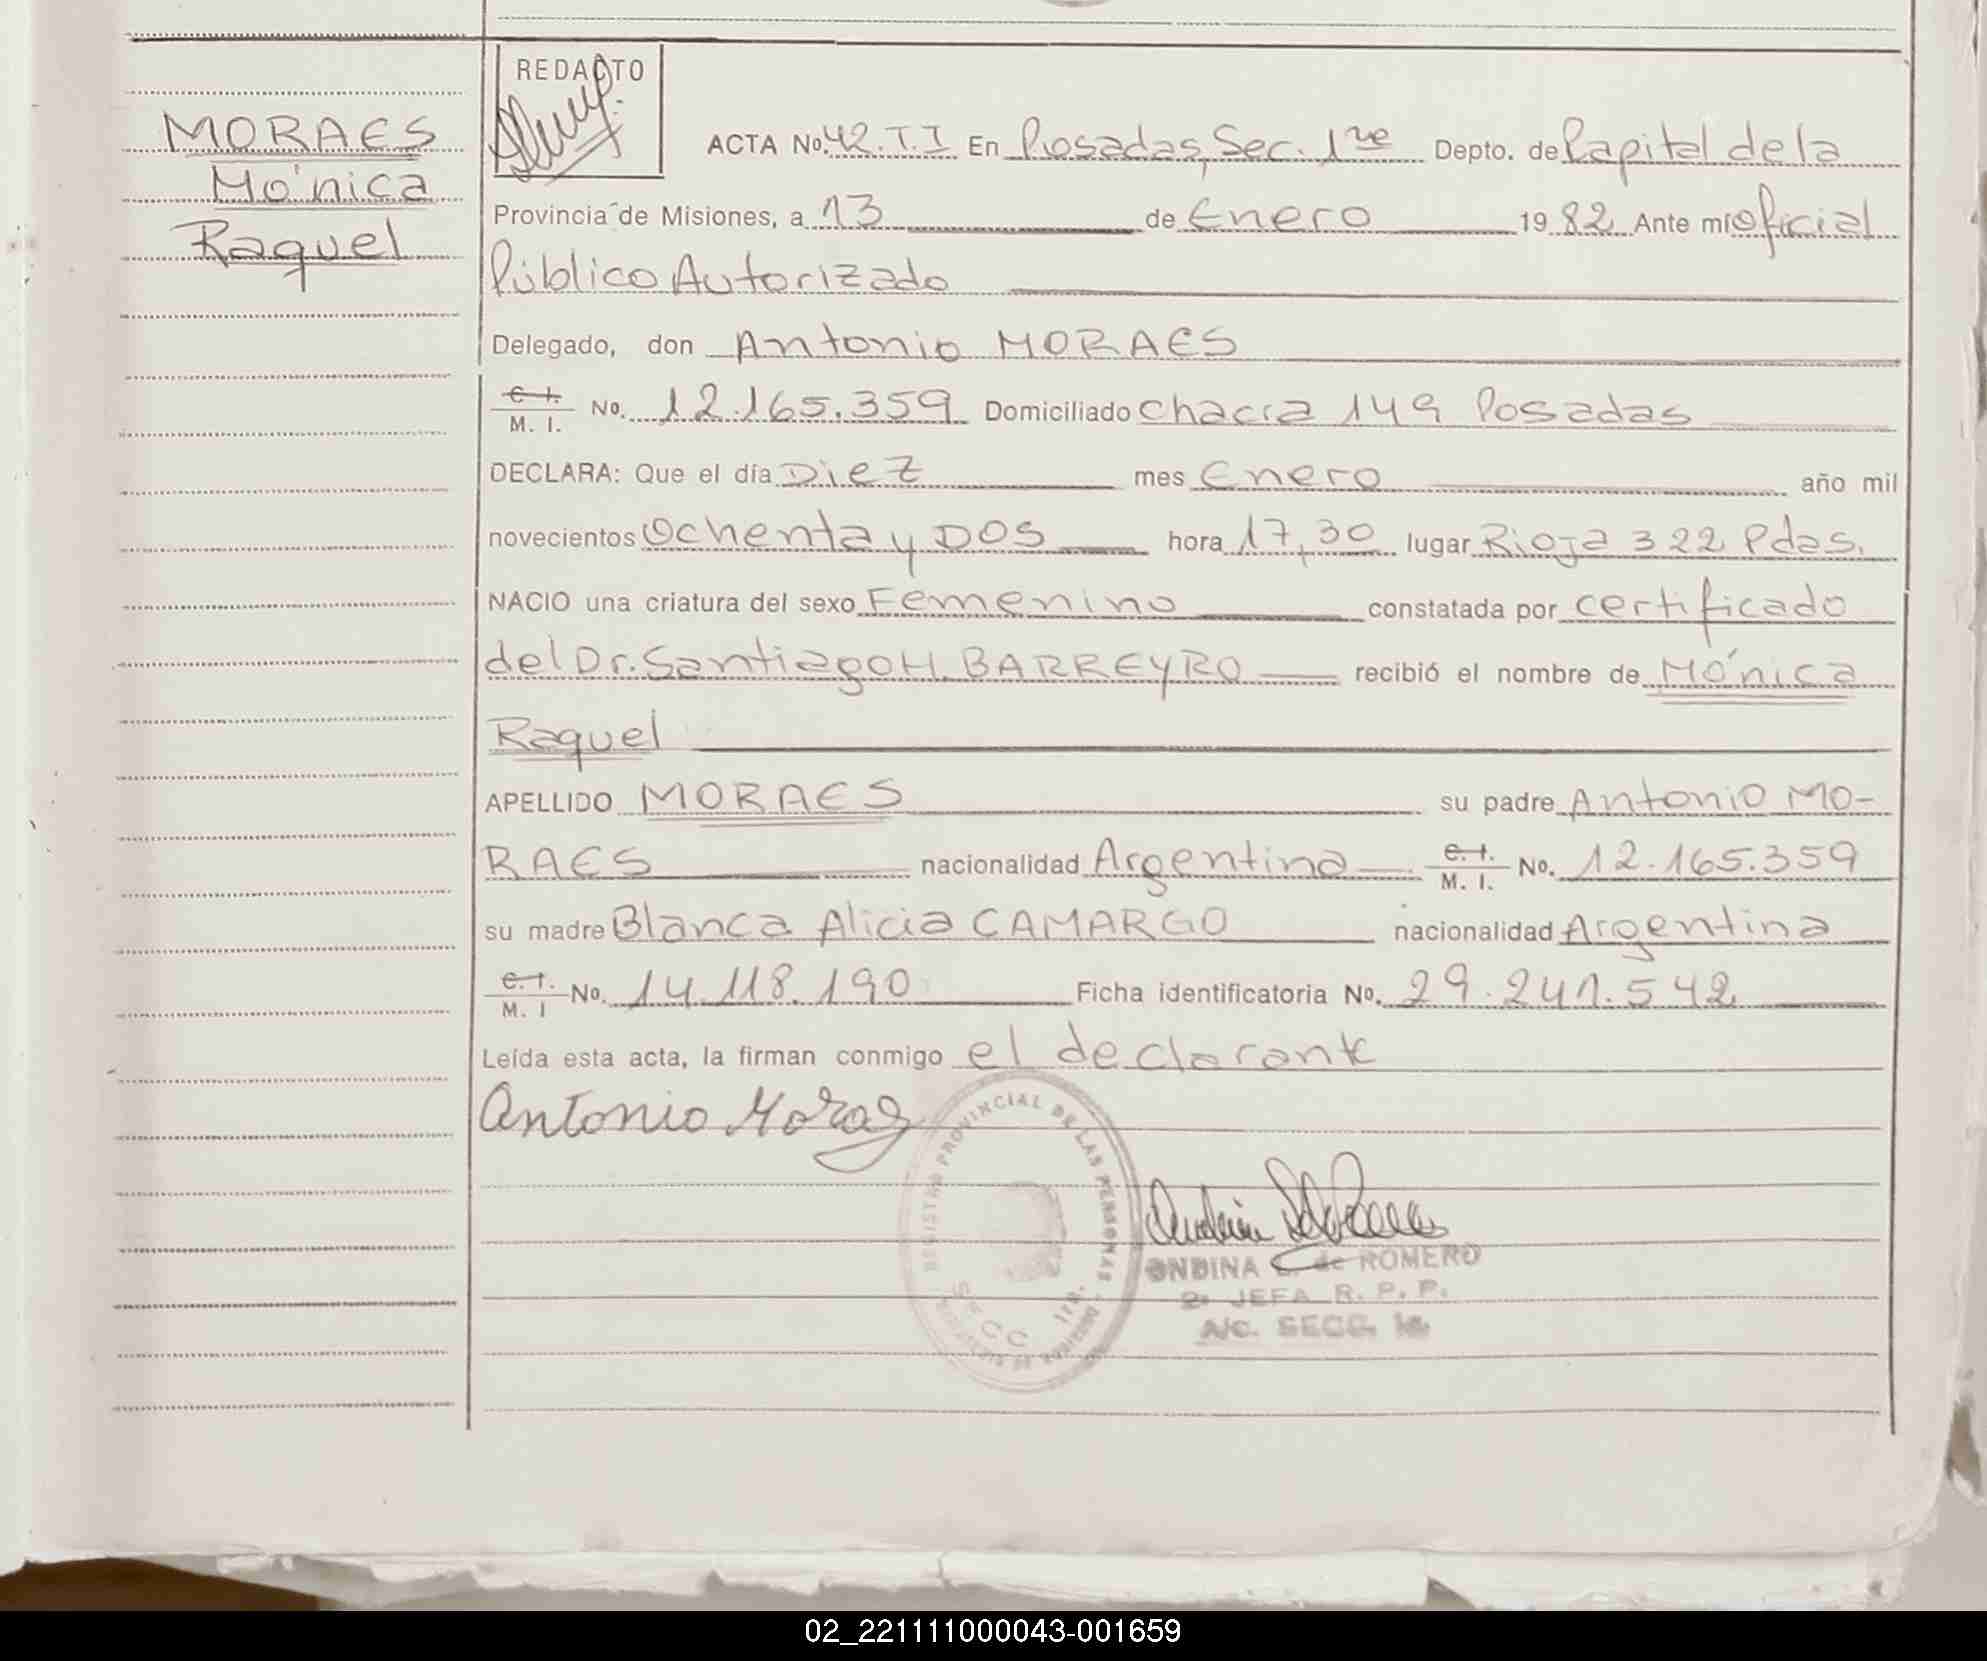 MORAES
Mónica
Raquel
REDACTO
ACTA No. 42.T.I En Posadas, Sec. 1ra Depto. de Capital de la
Provincia de Misiones, a 13 de Enero 1982 Ante mí oficial
Público Autorizado
Delegado, don Antonio MORAES
C. I. / M. I. No. 12.165.359 Domiciliado Chacra 149 Posadas
DECLARA: Que el día Diez mes Enero año mil
novecientos Ochenta y DOS hora 17,30 lugar Rioja 322 Pdas.
NACIO una criatura del sexo Femenino constatada por certificado
del Dr. Santiago H. BARREYRO recibió el nombre de Mónica
Raquel
APELLIDO MORAES su padre Antonio MO-
RAES nacionalidad Argentina C. I. / M. I. No. 12.165.359
su madre Blanca Alicia CAMARGO nacionalidad Argentina
C. I. / M. I No. 14.118.190 Ficha identificatoria No. 29.241.542
Leída esta acta, la firman conmigo el declarante
Antonio Moraes
REGISTRO PROVINCIAL DE LAS PERSONAS
SECC 1ra.
ONDINA de ROMERO
2a JEFA R. P. P.
A/C. SECC. 1a
02_221111000043-001659